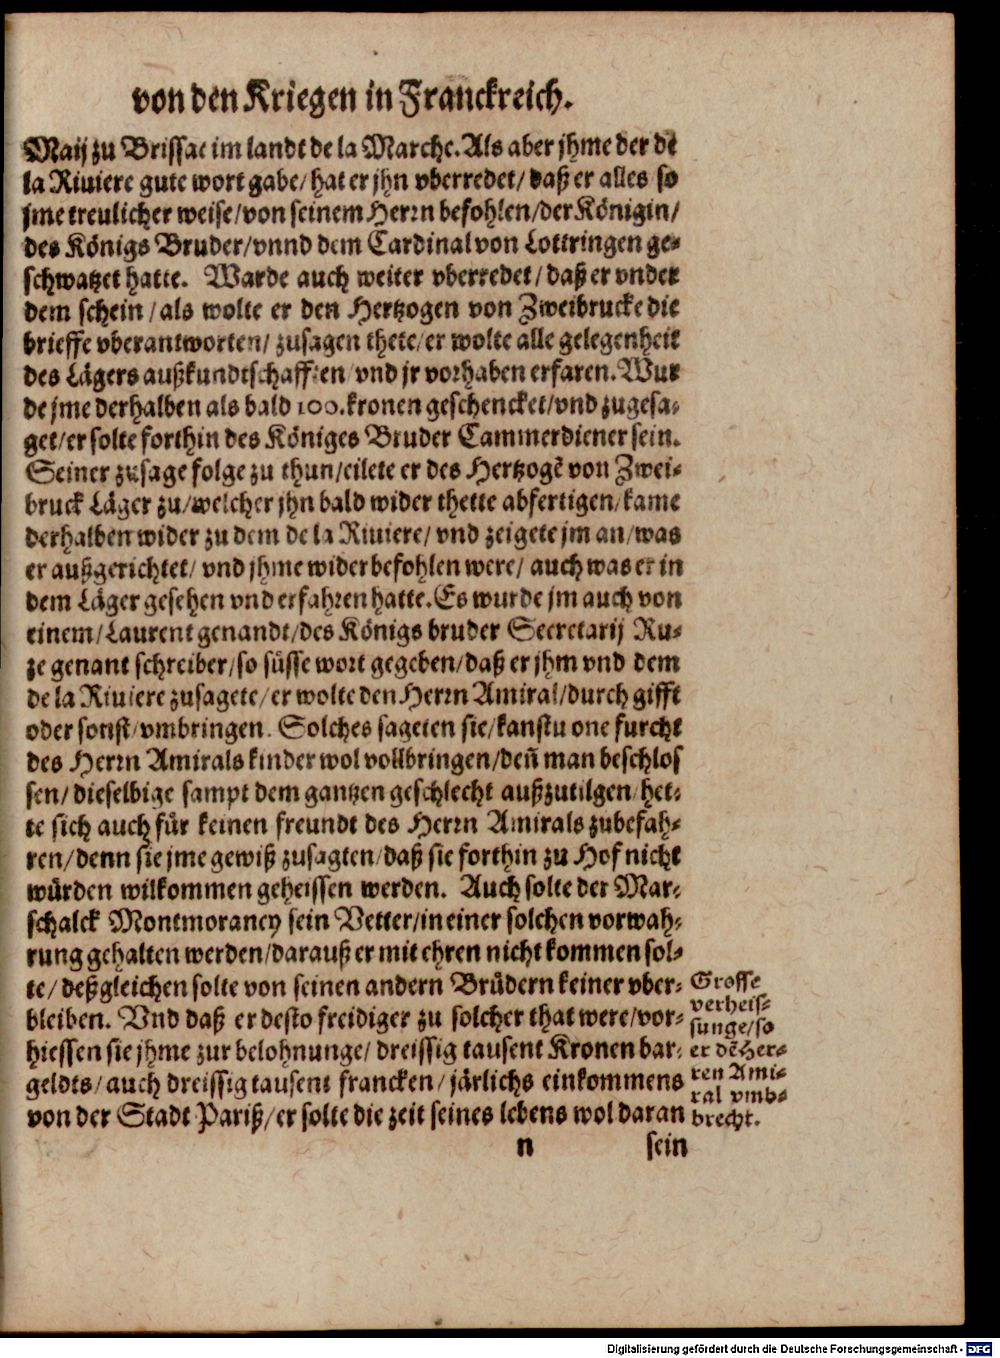 von den Kriegen in Franckreich.
Maij zu Brissac im landt de la Marche. Als aber jhme der de
la Riuiere gute wort gabe/ hat er jhn vberredet/ daß er alles so
jme treulicher weise/ von seinem Herrn befohlen/ der Königin/
des Königs Bruder/ vnnd dem Cardinal von Lottringen ge-
schwatzet hatte. Warde auch weiter vberredet/ daß er vnder
dem schein/ als wolte er den Hertzogen von Zweibrucke die
brieffe vberantworten/ zusagen thete/ er wolte alle gelegenheit
des Lägers außkundtschafften/ vnd jr vorhaben erfaren. Wur
de jme derhalben als bald 100. kronen geschencket/ vnd zugesa-
get/ er solte forthin des Königes Bruder Cammerdiener sein.
Seiner zusage folge zu thun/ eilete er des Hertzogē von Zwei-
bruck Läger zu/ welcher jhn bald wider thette abfertigen/ kame
derhalben wider zu dem de la Riuiere/ vnd zeigete jm an/ was
er außgerichtet/ vnd jhme wider befohlen were/ auch was er in
dem Läger gesehen vnd erfahren hatte. Es wurde jm auch von
einem/ Laurent genandt/ des Königs bruder Secretarij Ru-
ze genant schreiber/ so süsse wort gegeben/ daß er jhm vnd dem
de la Riuiere zusagete/ er wolte den Herrn Amiral/ durch gifft
oder sonst/ vmbringen. Solches sageten sie/ kanstu one furcht
des Herrn Amirals kinder wol vollbringen/ deñ man beschlos
sen/ dieselbige sampt dem gantzen geschlecht außzutilgen/ het-
te sich auch für keinen freundt des Herrn Amirals zubefah-
ren/ denn sie jme gewiß zusagten/ daß sie forthin zu Hof nicht
würden wilkommen geheissen werden. Auch solte der Mar-
schalck Montmorancy sein Vetter/ in einer solchen vorwah-
rung gehalten werden/ darauß er mit ehren nicht kommen sol-
te/ deßgleichen solte von seinen andern Brüdern keiner vber-
bleiben. Vnd daß er desto freidiger zu solcher that were/ vor-
hiessen sie jhme zur belohnunge/ dreissig tausent Kronen bar-
geldts/ auch dreissig tausent francken/ järlichs einkommens
von der Stadt Pariß/ er solte die zeit seines lebens wol daran
Grosse
verheis-
sunge/ so
er dē Her-
ren Ami-
ral vmb-
brecht.
n sein
Digitalisierung gefördert durch die Deutsche Forschungsgemeinschaft - DFG